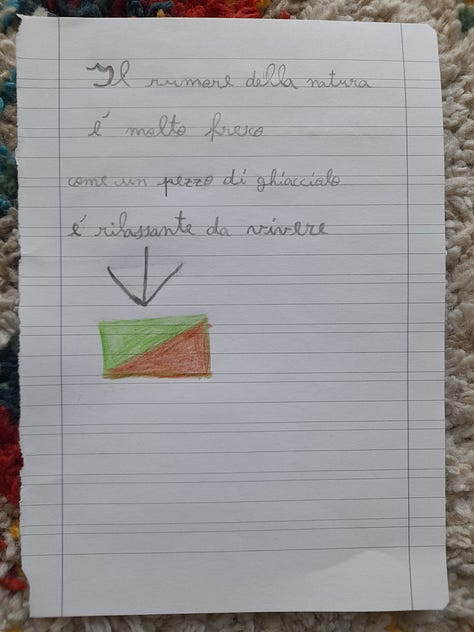 Il rumore della natura
é molto fresco
come un pezzo di ghiacciolo
é rilassante da vivere